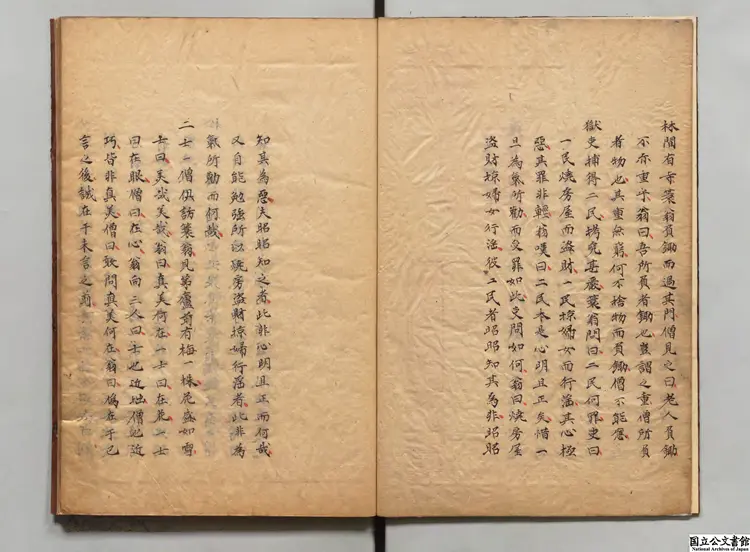 林間有寺蓑翁負鋤而過其門僧見之曰老人負鋤
不亦重乎翁曰吾所負者鋤也豈謂之重僧所負
者物也其重無窮何不捨物而負鋤僧不能應
獄吏捕得二民拷究甚嚴蓑翁問曰二民何罪吏曰
一民燒房屋而盜財一民掠婦女而行淫其心極
惡其罪非輕翁嘆曰二民本是心明且正矣惜一
旦為氣所動而受罪如此吏問如何翁曰燒房屋
盜財掠婦女行淫彼二民者昭昭知其為非昭昭
知其為惡夫昭昭知之者此非心明且正而何哉
又自能勉強所以燒房盜財掠婦行淫者此非為
氣所動而何哉
二士一僧俱訪蓑翁見茅廬前有梅一株花盛如雪
士曰美哉美哉翁曰真美何在一士曰在花一士
曰在眼僧曰在心翁向三人曰士也近拙僧也近
巧皆非真美僧曰敢問真美何在翁曰偽在乎已
言之後誠在乎未言之前
国立公文書館
National Archives of Japan